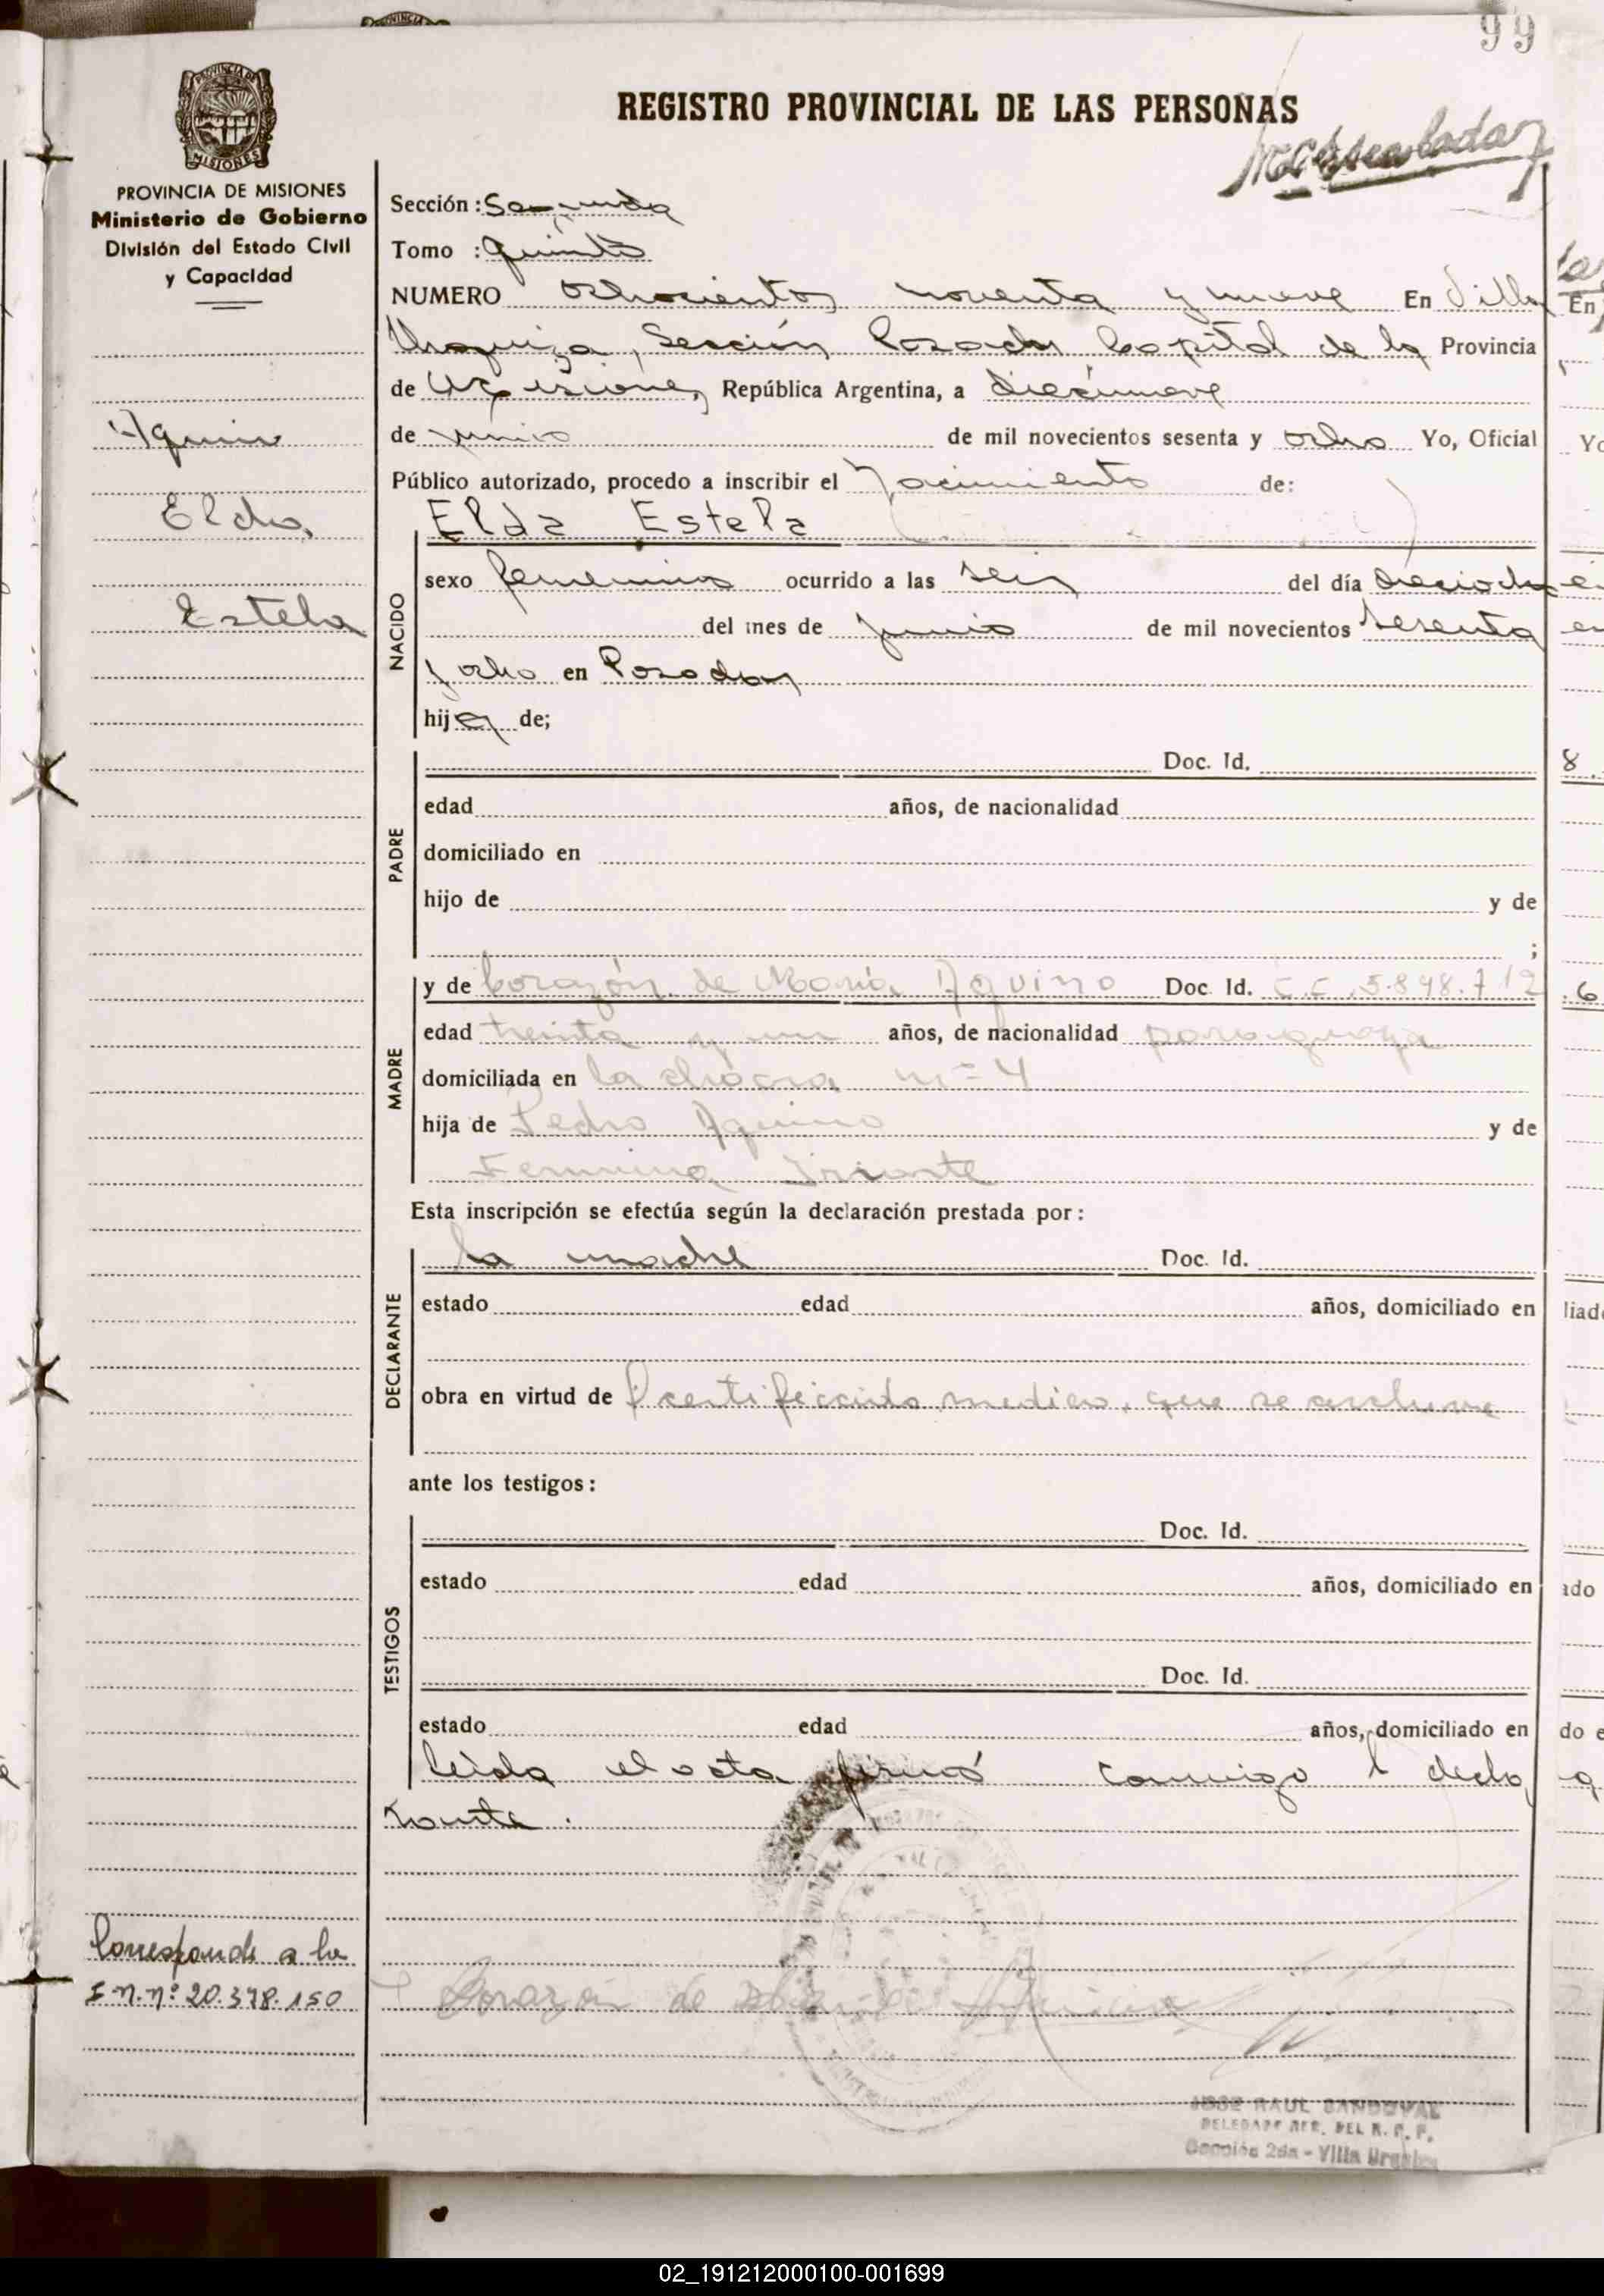 99
REGISTRO PROVINCIAL DE LAS PERSONAS
PROVINCIA DE MISIONES
Ministerio de Gobierno
División del Estado Civil
y Capacidad
Sección: Segunda
Tomo : Quinto
NUMERO ochocientos noventa y nueve En Villa
Urquiza, Sección Posadas Capital de la Provincia
de Misiones, República Argentina, a diecinueve
de junio de mil novecientos sesenta y ocho Yo, Oficial
Público autorizado, procedo a inscribir el Nacimiento de:
Aquino
Elda
Estela
NACIDO
Elda Estela
sexo femenino ocurrido a las seis del día dieciocho
del mes de junio de mil novecientos sesenta
y ocho en Posadas
hija de;
PADRE
Doc. Id.
edad años, de nacionalidad
domiciliado en
hijo de y de
;
MADRE
y de Corazón de María Aquino Doc. Id. C.C. 5.898.712
edad treinta y un años, de nacionalidad paraguaya
domiciliada en la chacra nº 4
hija de Pedro Aquino y de
Iriarte
Esta inscripción se efectúa según la declaración prestada por:
DECLARANTE
la madre Doc. Id.
estado edad años, domiciliado en
obra en virtud de certificado medico, que se archiva
ante los testigos:
TESTIGOS
Doc. Id.
estado edad años, domiciliado en
Doc. Id.
estado edad años, domiciliado en
leída el acta firmó conmigo l decla
rante.
Corresponde a la
I.N.nº 20.378.150
Corazon de
JOSE RAUL SANDOVAL
DEL R. P. P.
Sección 2da - Villa Urquiza
02_191212000100-001699